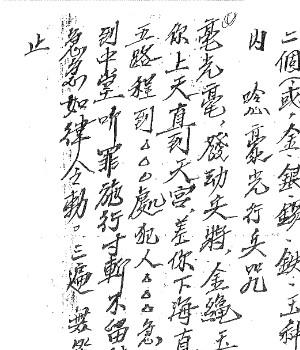 二個(或,金,銀,錢,鈇,玉斜
内 唸毫光行兵咒
毫光毫,發动兵將,金繩玉
你上天直到天宮,差你下海直
五路程到△△△處犯人△△△急
到中堂听罪施行寸斬不留
急急如律令勅。三遍
止